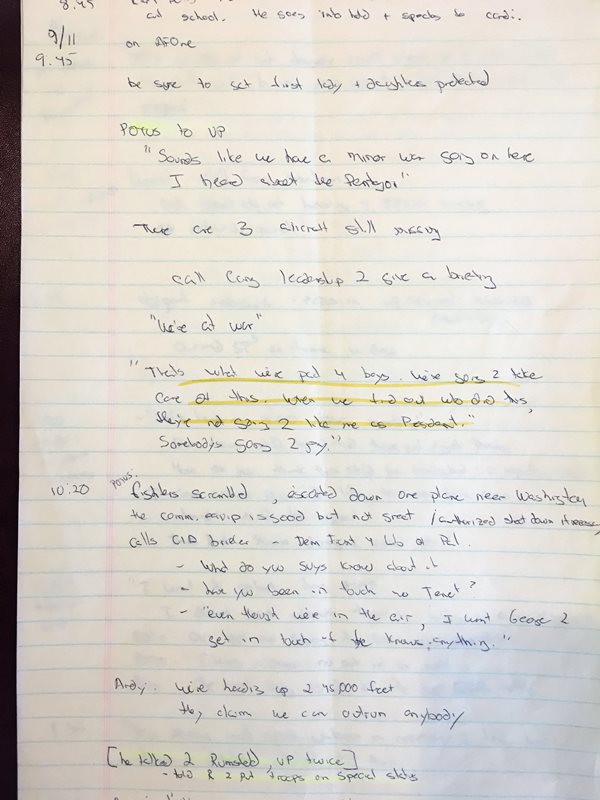 8.45
at school. He goes into hold + speaks to
9/11
9.45
on AFOne
be sure to get first lady + daughters protected
POTUS to VP
"Sounds like we have a minor war going on here
I heard about the Pentagon"
There are 3 aircraft still missing
call Cong leadership 2 give a briefing
"We're at war"
"Thats what we're paid 4 boys. We're going 2 take
care of this. When we find out who did this,
they're not going 2 like me as President."
Somebody's going 2 pay."
10:20
POTUS:
fighters scrambled, escorted down one plane near Washington
the comm. equip is good but not great / authorized shot down if necessary
calls CIA briefer - Dem Front 4 Lib of Pal.
- what do you guys know about it
- have you been in touch w Tenet?
- "even though we're in the air, I want George 2
get in touch if he knows anything."
Andy: we're heading up 2 45,000 feet
they claim we can outrun anybody
[he talked 2 Rumsfeld, VP twice]
- told R 2 put troops on special status